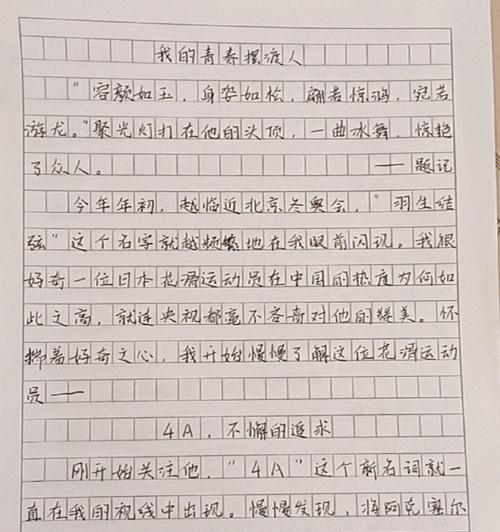 我的青春摆渡人
“容颜如玉，身姿如松，翩若惊鸿，宛若
游龙。”聚光灯打在他的头顶，一曲冰舞，惊艳
了众人。——题记
今年年初，越临近北京冬奥会，“羽生结
弦”这个名字就越频繁地在我眼前闪现。我很
好奇一位日本花滑运动员在中国的热度为何如
此之高，就连央视都毫不吝啬对他的赞美。怀
揣着好奇之心，我开始慢慢了解这位花滑运动
员——
4A，不懈的追求
刚开始关注他，“4A”这个新名词就一
直在我的视线中出现。慢慢发现，将阿克奥尔